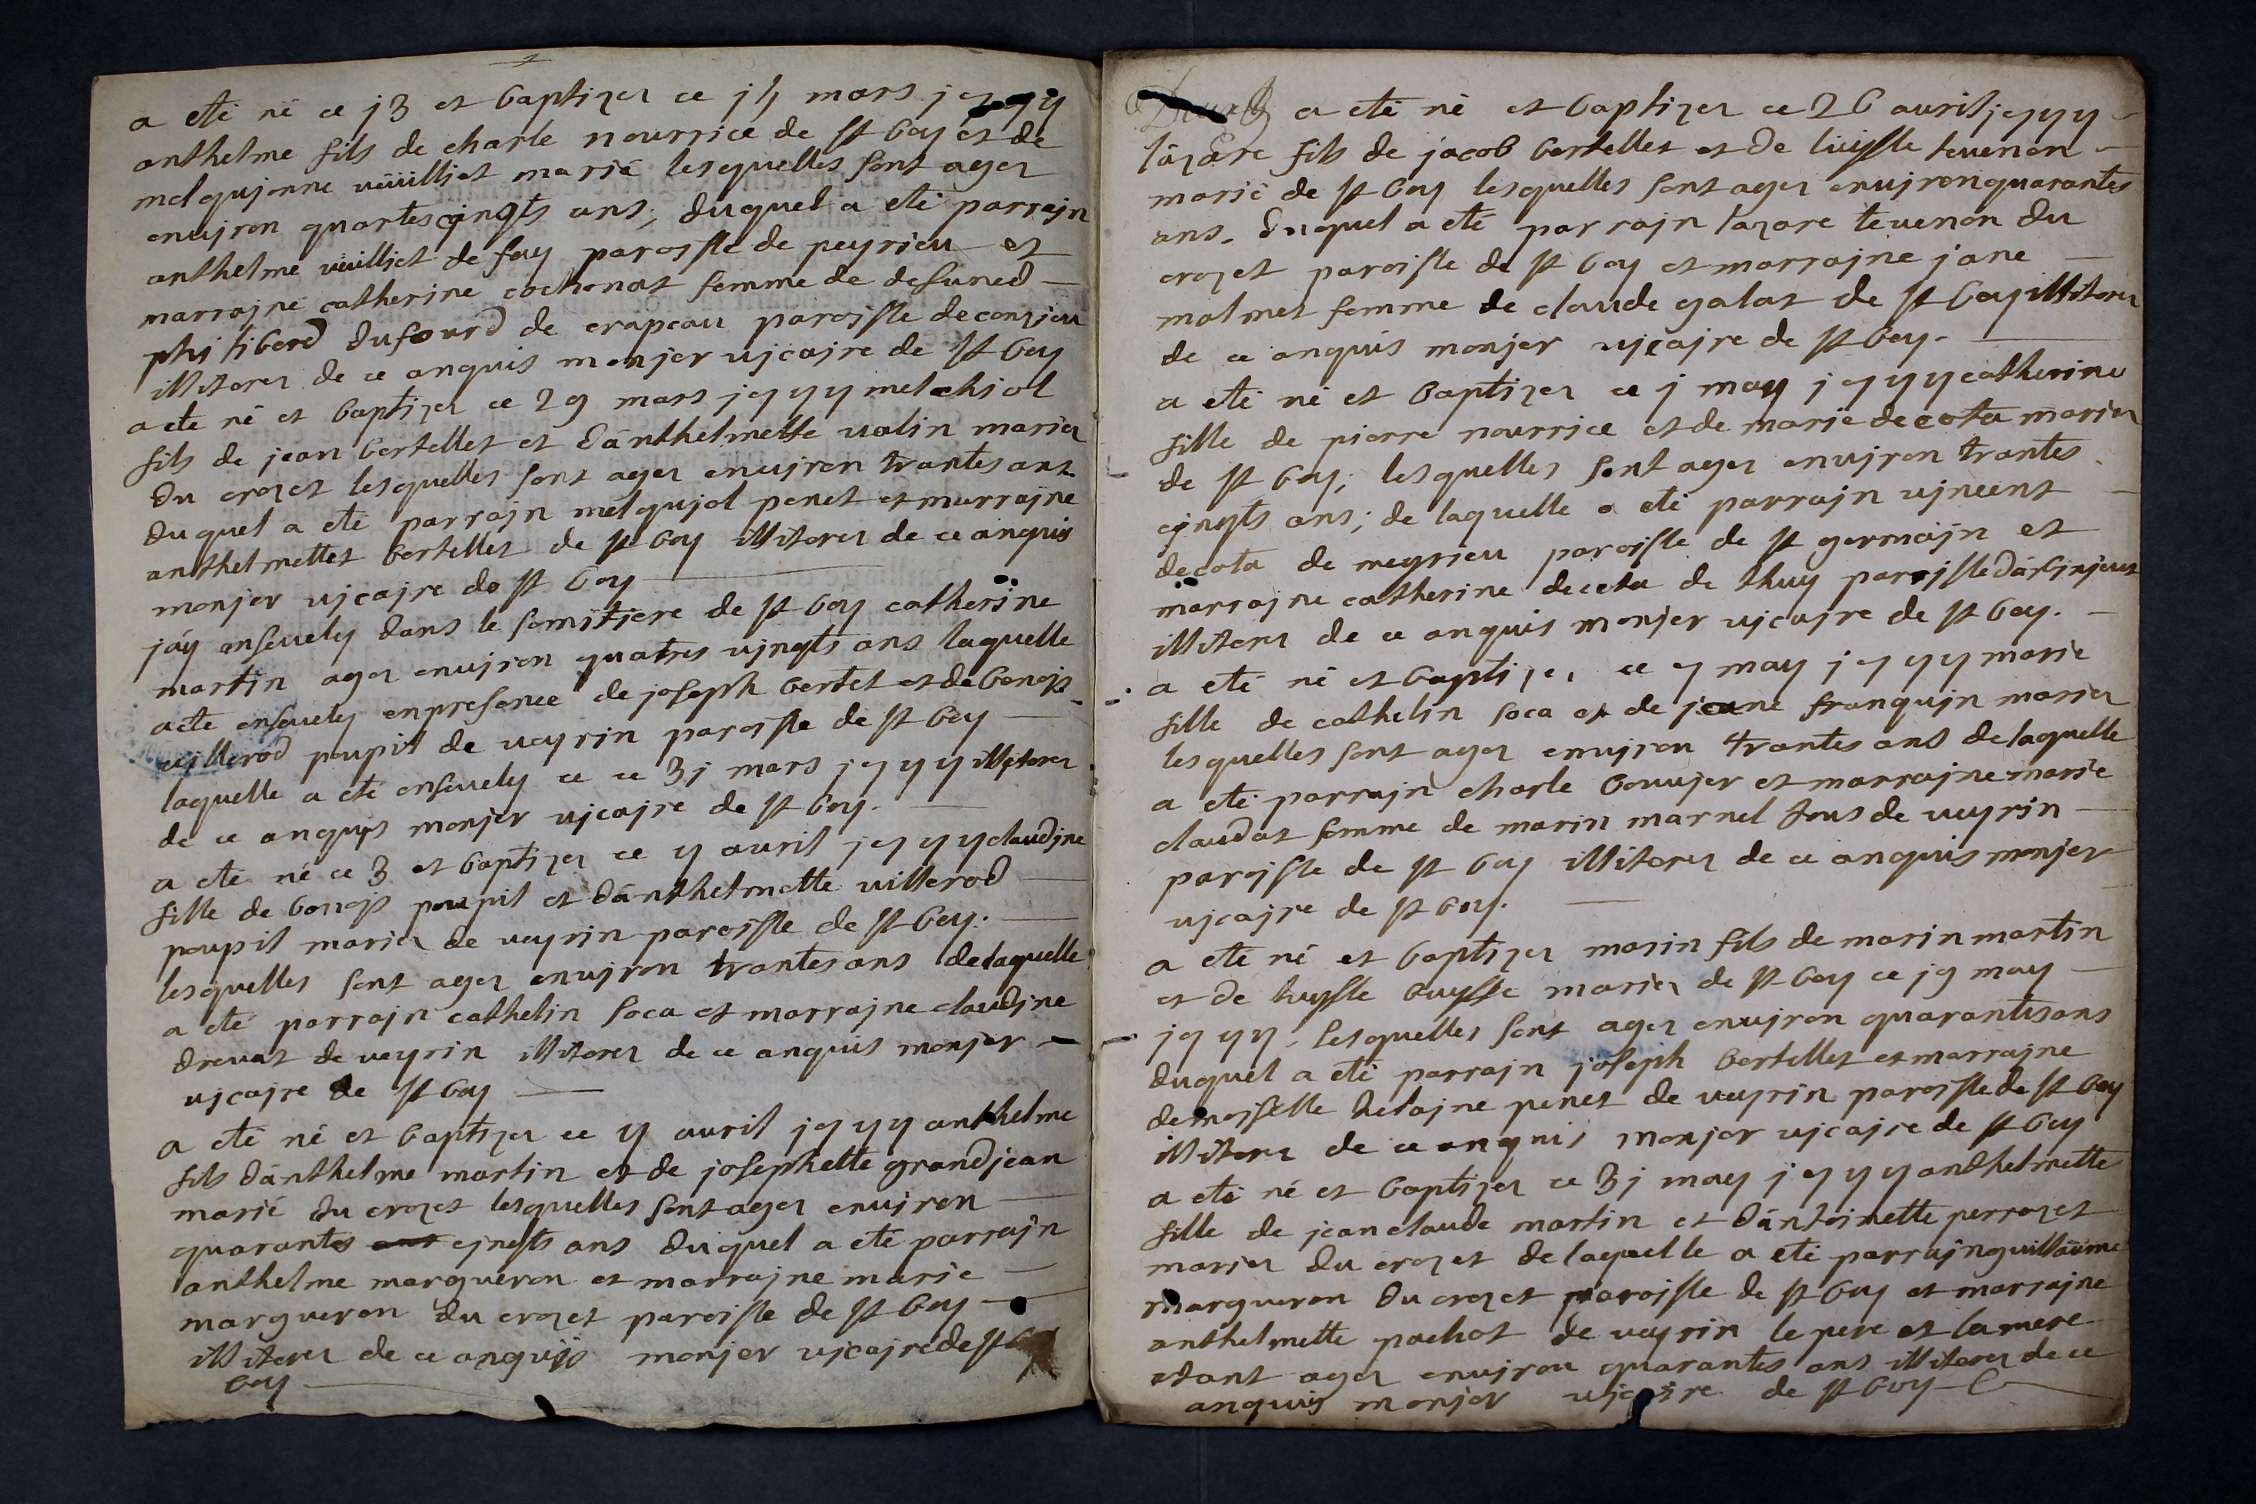 a eté né ce j3 et baptizer ce j4 mars
anthelme fils de charle nourrice de st boy et de
melqujonne veüilliet marié lesquelles sont ager
enujron quartes cjngts ans, duquel a eté parrajn
anthelme veuilliet de fay parojsse de peyrieu et
marrajne catherine cochonat femme de defuned
philiberd dufourd de crapeau parojsse de conzieu
illiterer de ce anquis monjer ujcajre de st boy
a ete né et baptizer ce 29 mars j677 melchiol
fils de jean bertellet et dánthelmette uolin marier
du crozet lesquelles sont ager enujron trantes ans
duquel a eté parrajn melqujol penet et marrajne
anthelmettet bertellet de st boy illiterer de ce anquis
monjer ujcajre de st boy
jáy enseuely dans le semitjere de st boy catherine
martin ager enujron quatres ujngts ans laquelle
a eté enseuely en presence de joseph bertet et de benojs
uillerod poupil de ueyrin parojsse de st boy
laquelle a eté enseuely ce ce 3j mars j677 illiterer
de ce anquis monjer ujcajre de st boy.
a eté né ce 3 et baptizer ce 4 auril j677 claudjne
fille de benojs poupil et dánthelmette uillerod
poupil marier de ueyrin parojsse de st boy.
lesquelles sont ager enujron trantes ans de laquelle
a eté parrajn cathelin soca et marrajne claudjne
dreuat de ueyrin illiterer de ce anquis monjer
ujcajre de st boy
a eté né et baptizer ce 4 auril j677 anthelme
fils dánthelme martin et de josephette grandjean
marié du crozet lesquelles sont ager enujron
quarantes ans cjngts ans duquel a eté parrajn
anthelme margueron et marrajne marie
margueron du crozet parojsse de st boy
illiterer de ce anquis monjer ujcajre de st
boy
a eté né et baptizer ce 26 auril j677
lázare fils de jacob bertellet et de luysse teuenon
marié de st boy lesquelles sont ager enujron quarantes
ans. duquel a eté parrajn lazare teuenon du
crozet parojsse de st boy et marrajne jane
malmet femme de claude galat de st boy illiterer
de ce anquis monjer ujcajre de st boy.
a eté né et baptizer ce j may j677 catherine
fille de pierre nourrice et de marie decota marier
de st boy, lesquelles sont ager enujron trantes
cjngts ans; de laquelle a eté parrajn ujncent
decota de meyrieu parojsse de st germajn et
marrajne catherine decota de thuy parojsse dárbjnjeux
illiterer de ce anquis monjer ujcajre de st boy.
a eté né et baptizer ce 7 may j677 marie
fille de cathelin soca et de jeane franqujn marier
lesquelles sont ager enujron trantes ans de laquelle
a eté parrajn charle bouujer et marrajne marie
claudat femme de marin marnel tous de ueyrin
parojsse de st boy illiterer de ce anquis monjer
ujcajre de st boy.
a eté né et baptizer marin fils de marin martin
et de luysse buysse marier de st boy ce j9 may
j677, lesquelles sont ager enujron quarantes ans
duquel a eté parrajn joseph bertellet et marrajne
demoiselle helajne penet de ueyrin parojsse de st boy
illiterer de ce anquis monjer ujcajre de st boy
a eté né et baptizer ce 3j may j677 anthelmette
fille de jean claude martin et dántoinette perrozet
marier du crozet de laquelle a eté parrajn guillaume
margueron du crozet parojsse de st boy et marrajne
anthelmette pochot de ueyrin le pere et la mere
etant ager enujron quarantes ans illiterer de ce
anquis monjer ujcajre de st boy